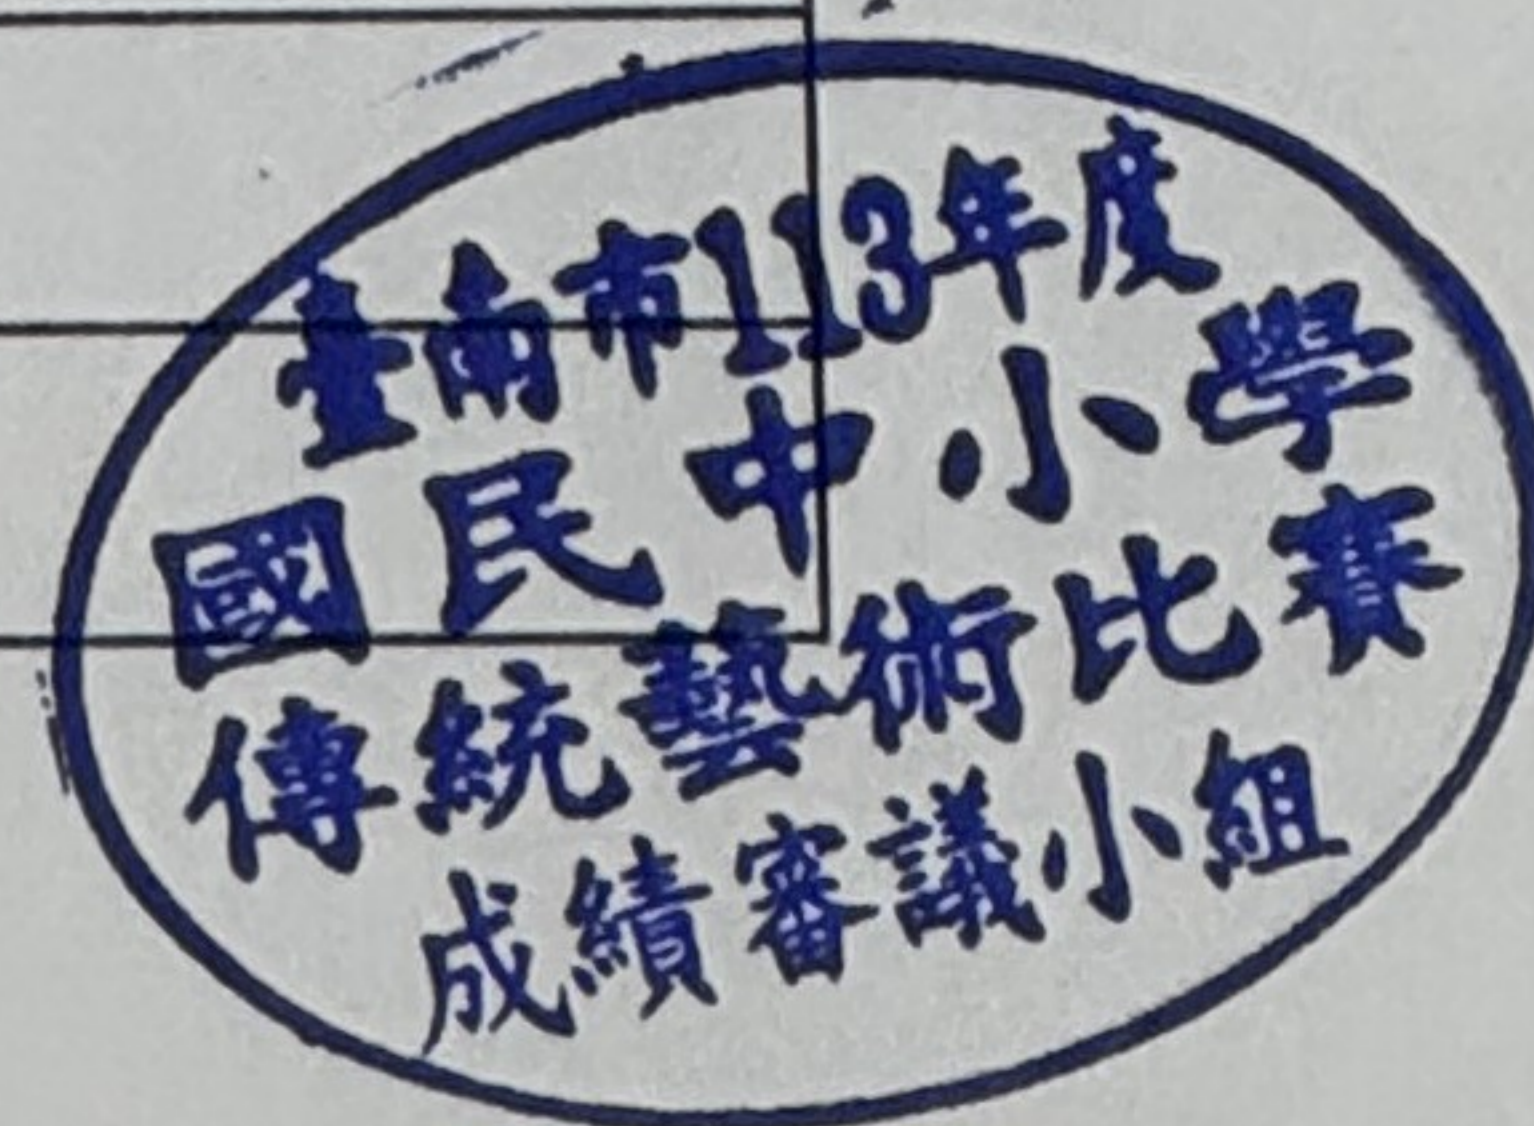 臺南市113年度
國民中小學
傳統藝術比賽
成績審議小組